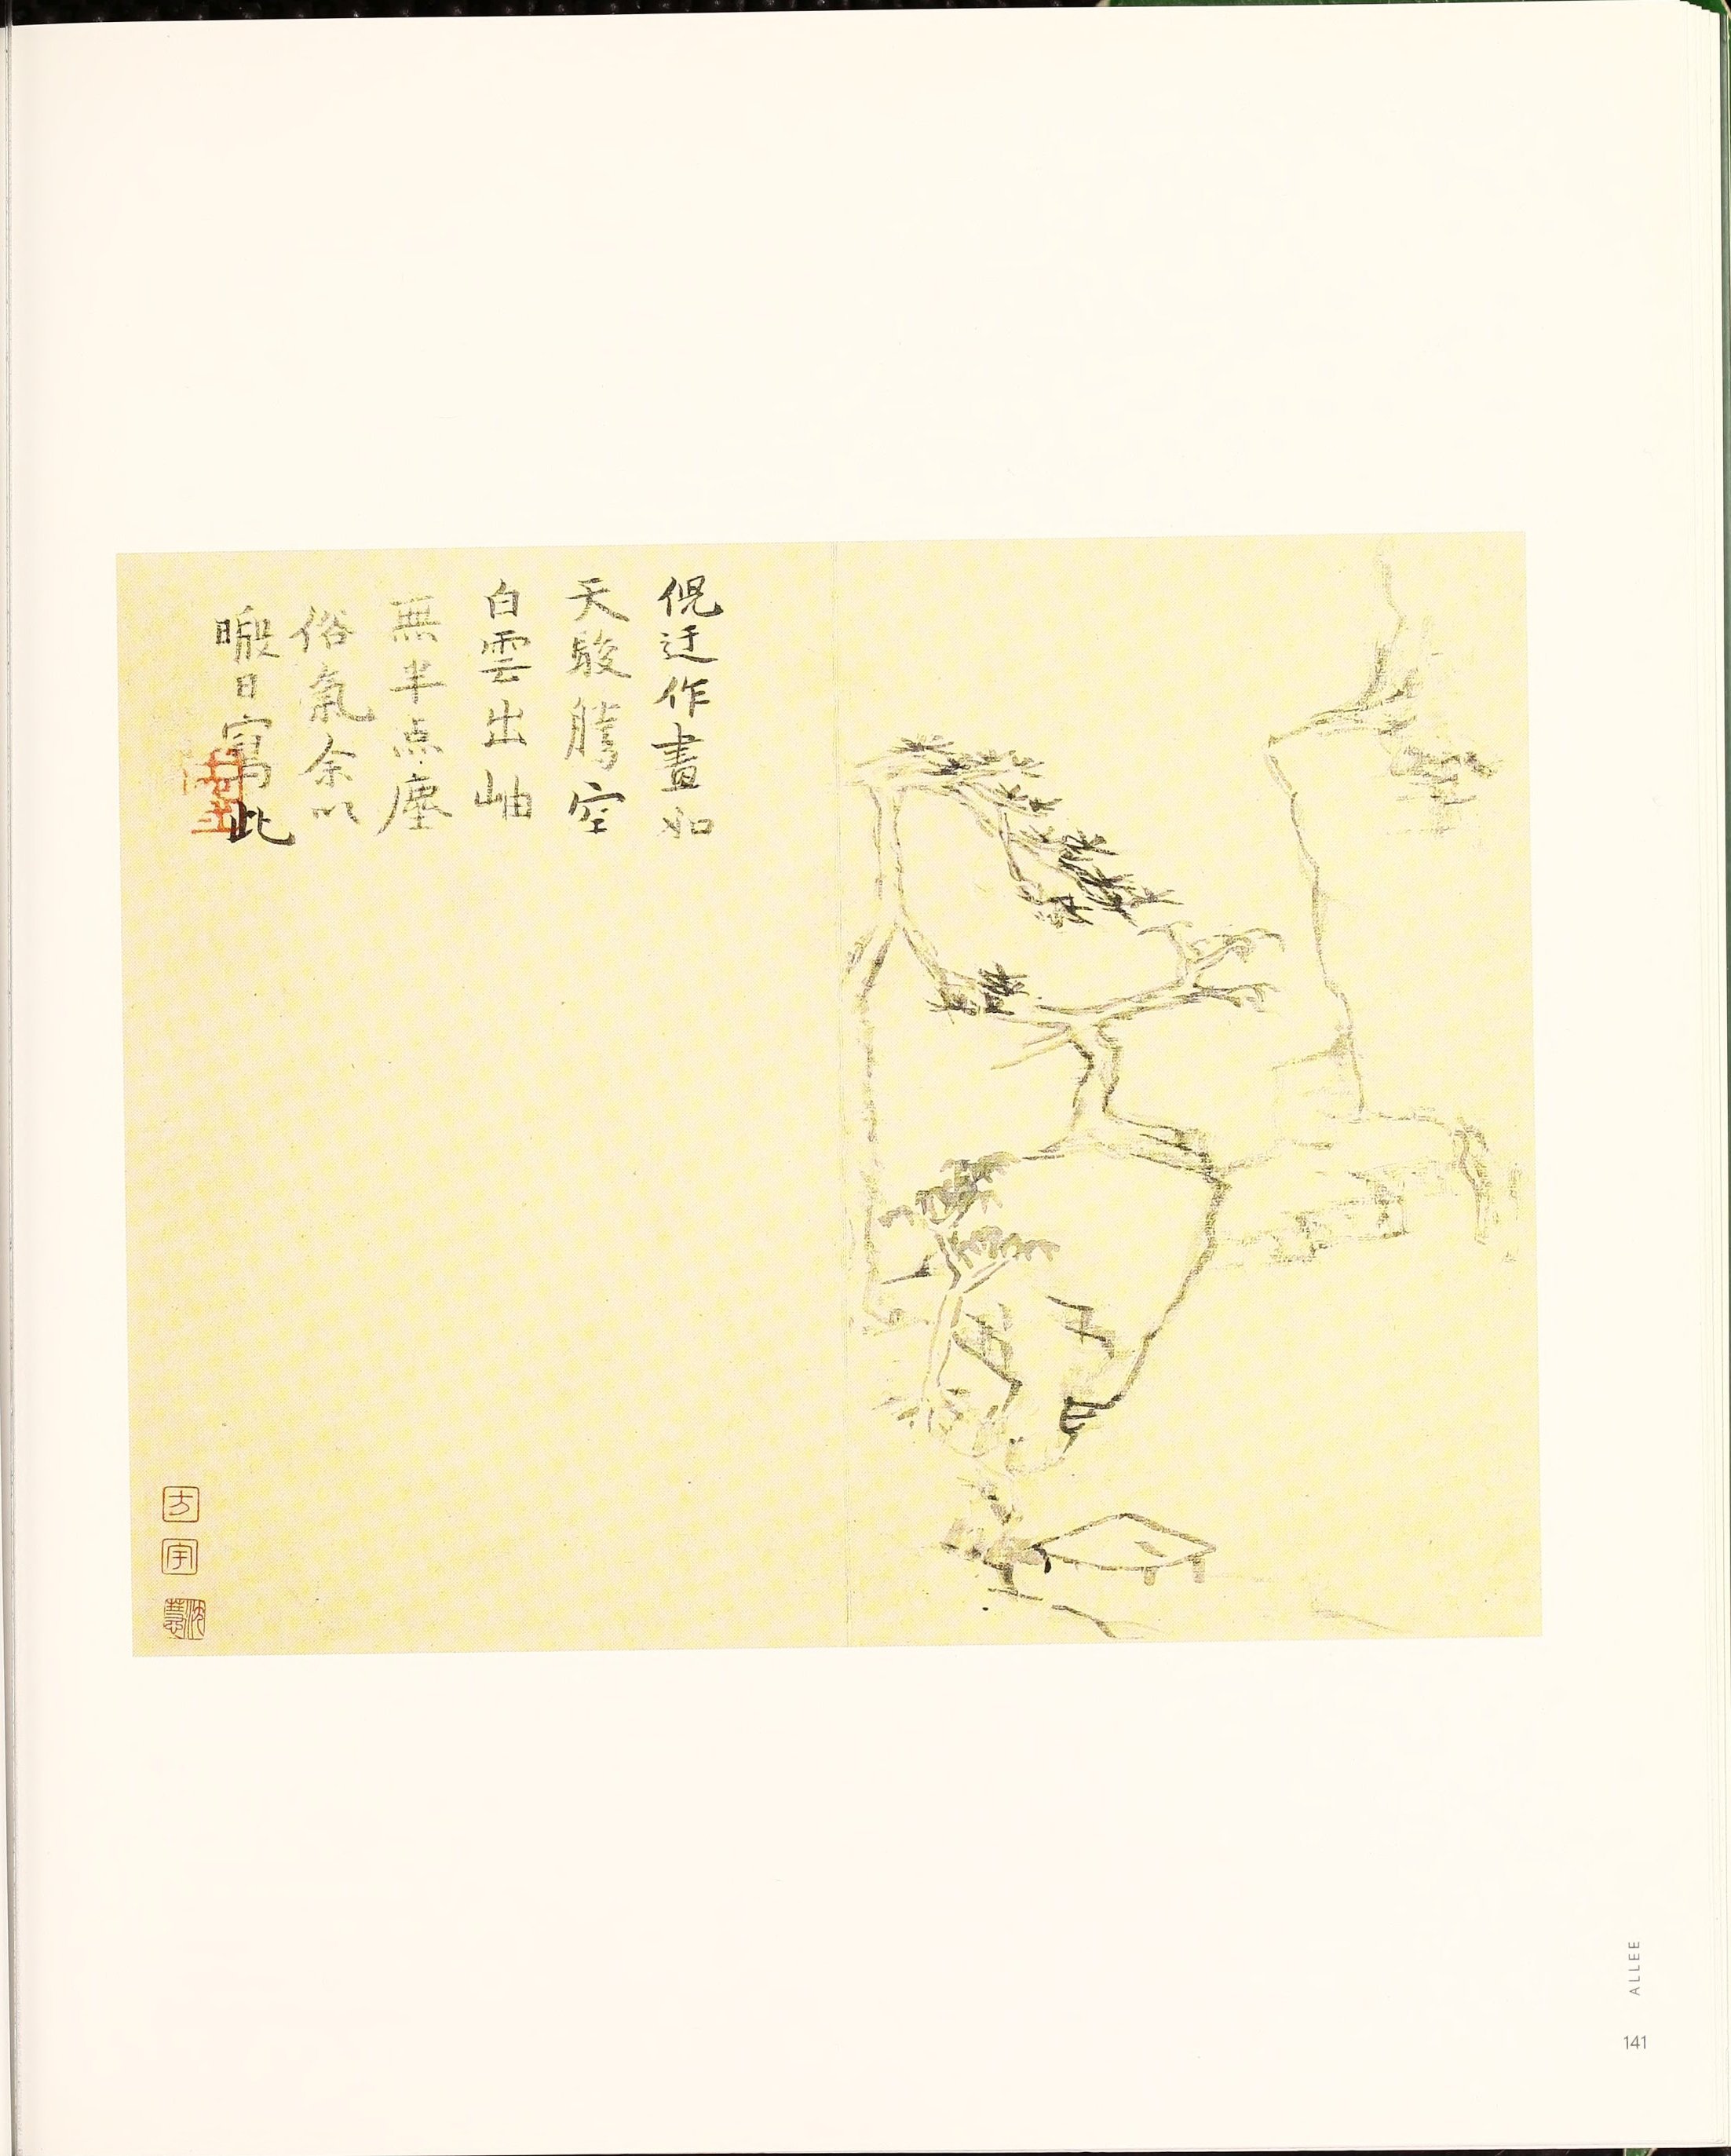 倪迂作畫如
天駿騰空
白雲出岫
無半点塵
俗氣余以
暇日寫此
方
宇
沈慧
ALLEE
141